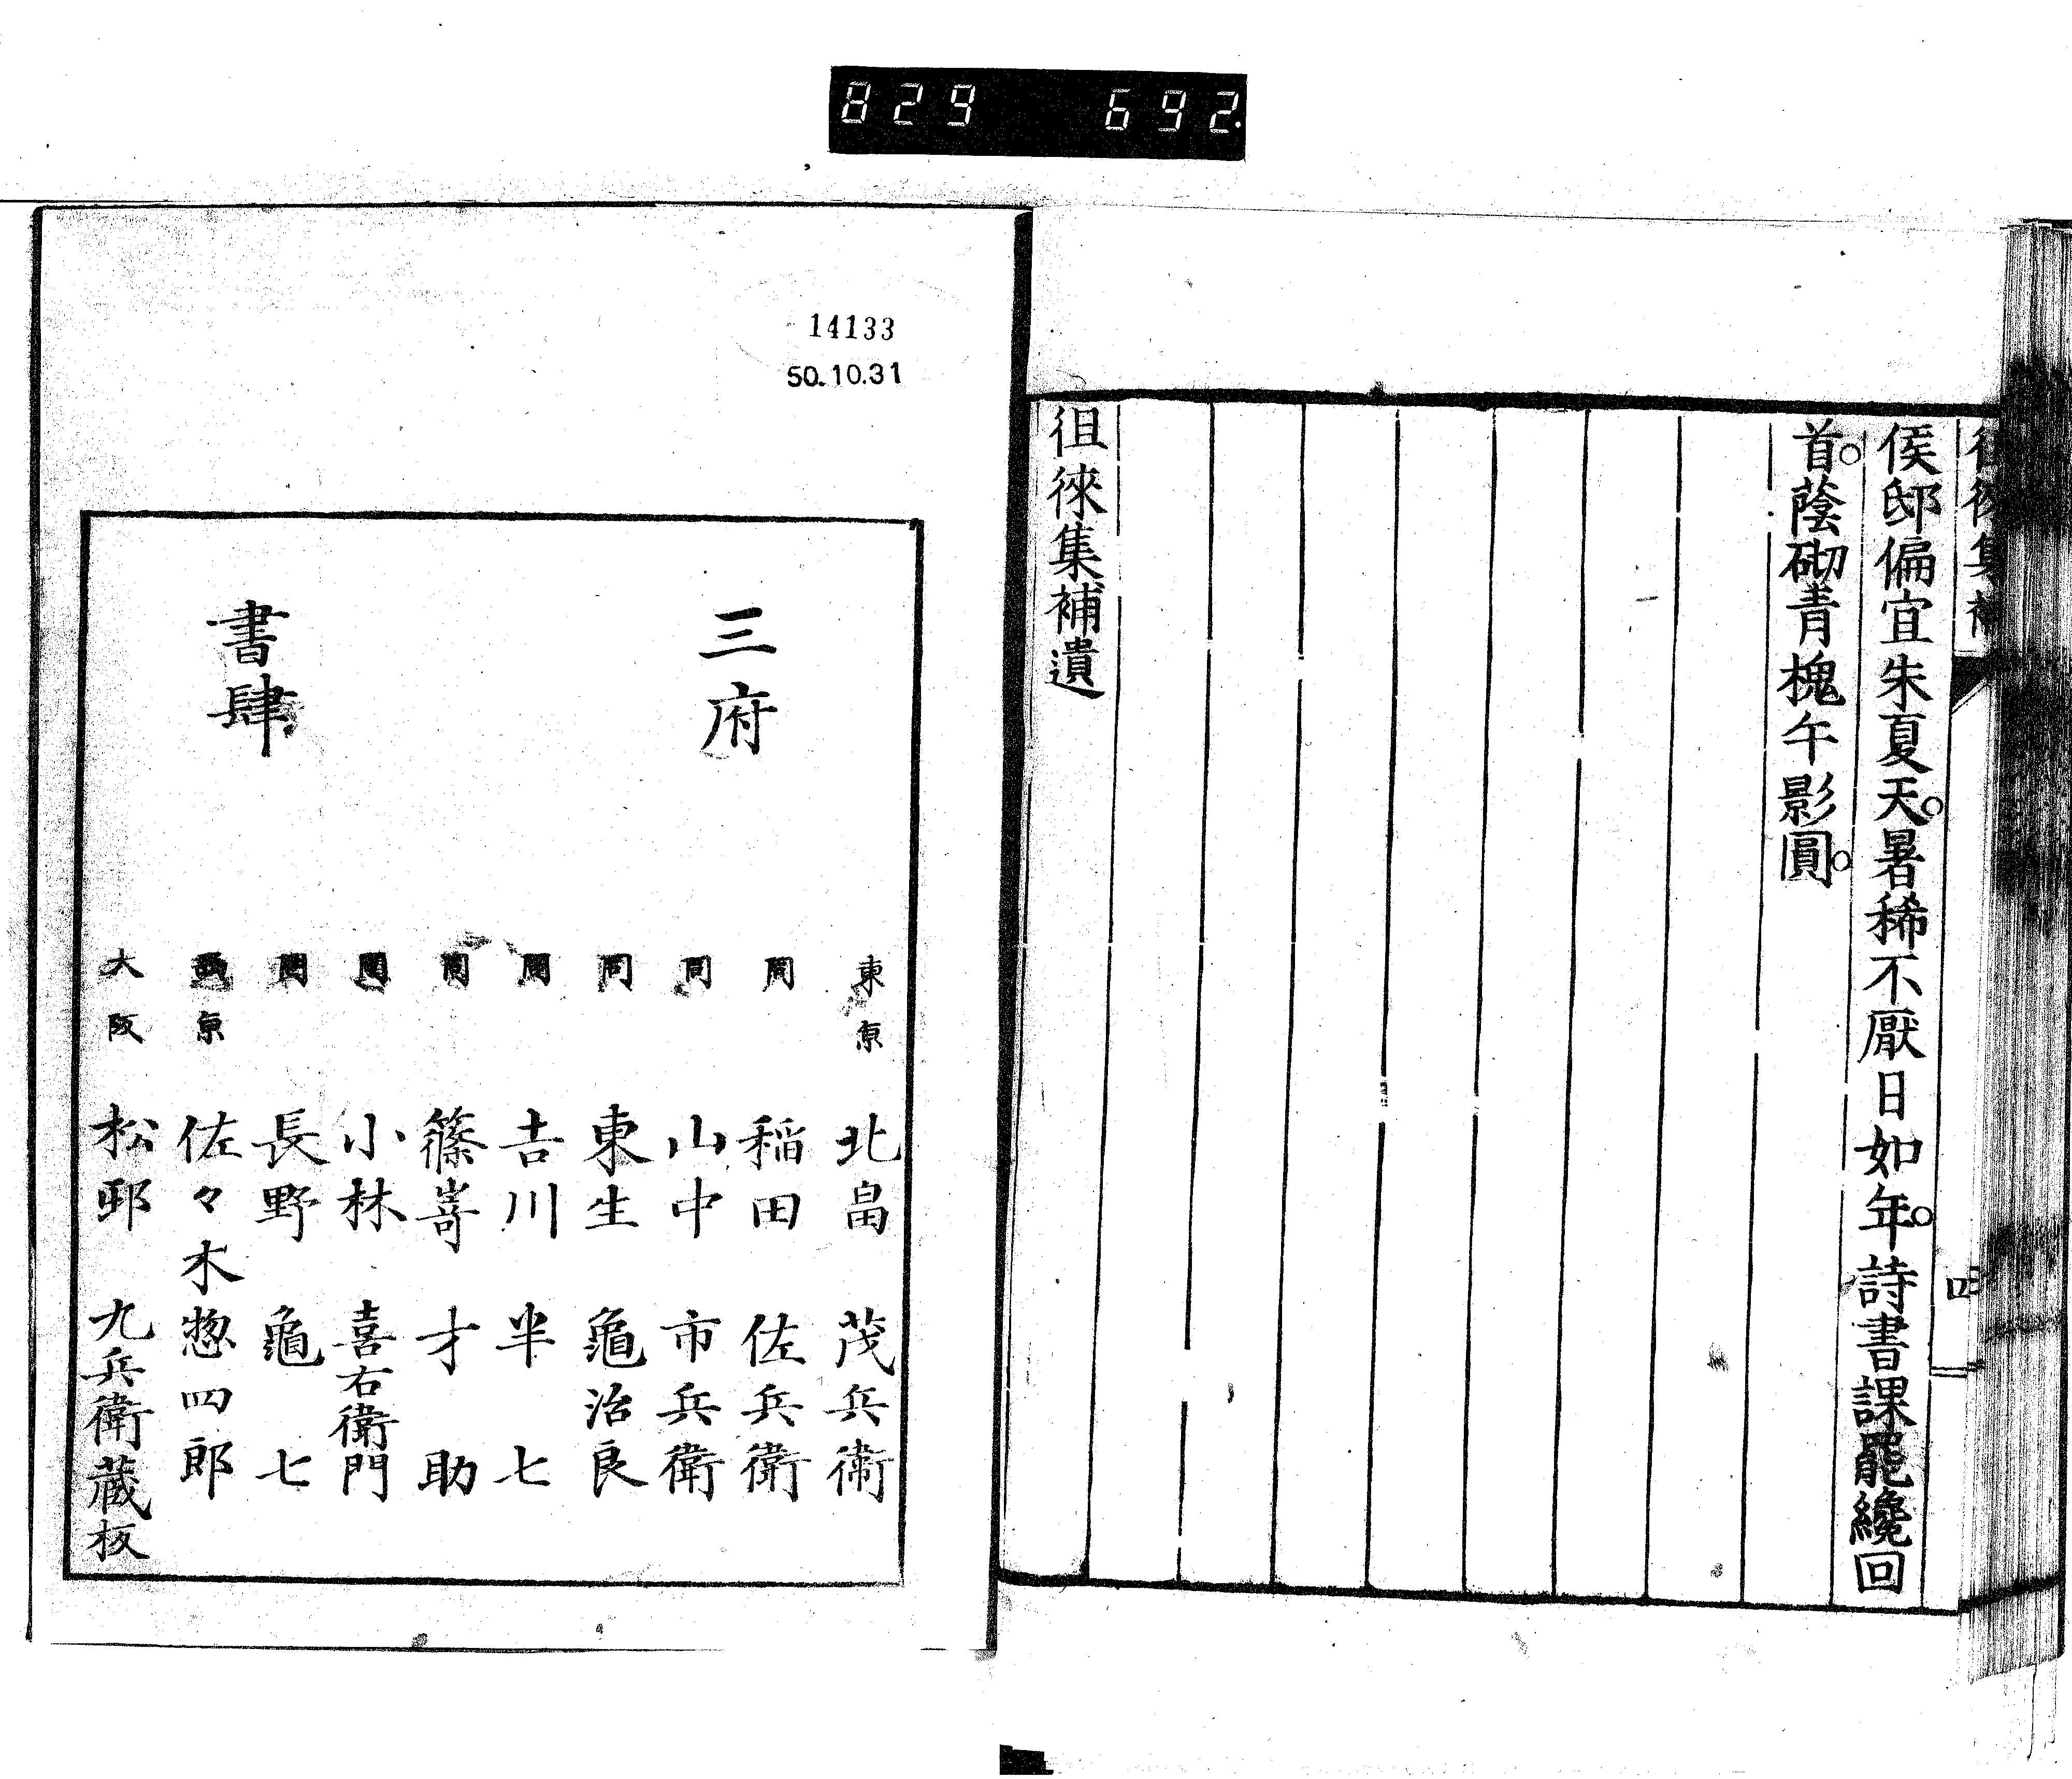 829 692
徂徠集補
四
侯邸偏宜朱夏天暑稀不厭日如年詩書課罷纔回
首蔭砌青槐午影圓
徂徠集補遺
14133
50.10.31
三府
書肆
東京 北畠 茂兵衛
同 稲田 佐兵衛
同 山中 市兵衛
同 東生 亀治良
同 吉川 半七
同 篠嵜 才助
同 小林 喜右衛門
同 長野 亀七
西京 佐々木惣四郎
大阪 松邨 九兵衛蔵板